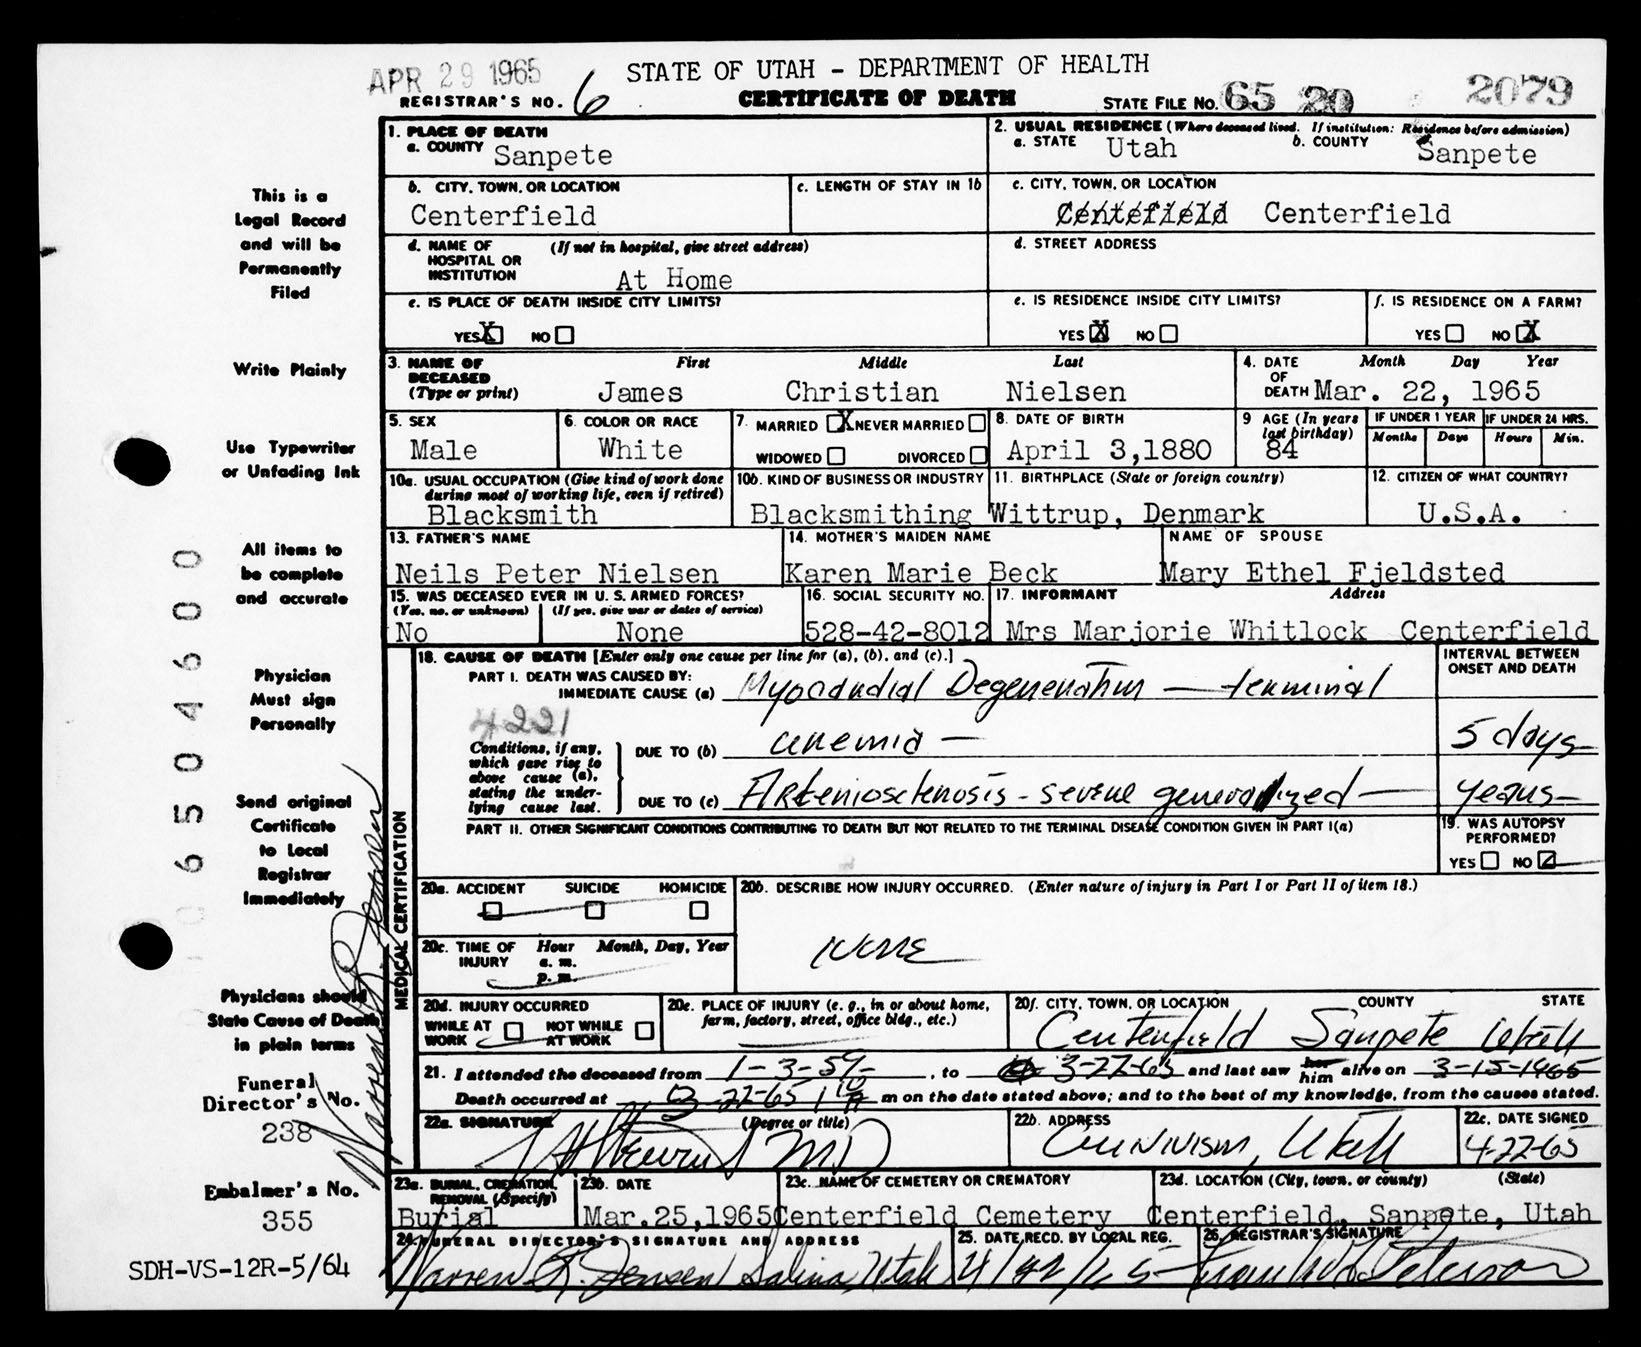 APR 29 1965
STATE OF UTAH - DEPARTMENT OF HEALTH
REGISTRAR'S NO. 6
CERTIFICATE OF DEATH
STATE FILE NO. 65 20 2079
This is a
Legal Record
and will be
Permanently
Filed
Write Plainly
Use Typewriter
or Unfading Ink
All items to
be complete
and accurate
Physician
Must sign
Personally
Send original
Certificate
to Local
Registrar
Immediately
Physicians should
State Cause of Death
in plain terms
Funeral
Director's No.
238
Embalmer's No.
355
SDH-VS-12R-5/64
6504600
Warren R. Jensen
1. PLACE OF DEATH
a. COUNTY Sanpete
2. USUAL RESIDENCE (Where deceased lived. If institution: Residence before admission)
a. STATE Utah b. COUNTY Sanpete
b. CITY, TOWN, OR LOCATION
Centerfield
c. LENGTH OF STAY IN 1b
c. CITY, TOWN, OR LOCATION
Centefield Centerfield
d. NAME OF HOSPITAL OR INSTITUTION (If not in hospital, give street address)
At Home
d. STREET ADDRESS
e. IS PLACE OF DEATH INSIDE CITY LIMITS?
YES X NO
e. IS RESIDENCE INSIDE CITY LIMITS?
YES X NO
f. IS RESIDENCE ON A FARM?
YES NO X
3. NAME OF DECEASED (Type or print) First Middle Last
James Christian Nielsen
4. DATE OF DEATH Month Day Year
Mar. 22, 1965
5. SEX
Male
6. COLOR OR RACE
White
7. MARRIED X NEVER MARRIED
WIDOWED DIVORCED
8. DATE OF BIRTH
April 3,1880
9 AGE (In years last birthday)
84
IF UNDER 1 YEAR
Months Days
IF UNDER 24 HRS.
Hours Min.
10a. USUAL OCCUPATION (Give kind of work done during most of working life, even if retired)
Blacksmith
10b. KIND OF BUSINESS OR INDUSTRY
Blacksmithing
11. BIRTHPLACE (State or foreign country)
Wittrup, Denmark
12. CITIZEN OF WHAT COUNTRY?
U.S.A.
13. FATHER'S NAME
Neils Peter Nielsen
14. MOTHER'S MAIDEN NAME
Karen Marie Beck
NAME OF SPOUSE
Mary Ethel Fjeldsted
15. WAS DECEASED EVER IN U. S. ARMED FORCES?
(Yes, no. or unknown) (If yes, give war or dates of service)
No None
16. SOCIAL SECURITY NO.
528-42-8012
17. INFORMANT Address
Mrs Marjorie Whitlock Centerfield
MEDICAL CERTIFICATION
18. CAUSE OF DEATH [Enter only one cause per line for (a), (b), and (c).]
INTERVAL BETWEEN ONSET AND DEATH
PART I. DEATH WAS CAUSED BY:
IMMEDIATE CAUSE (a) Myocardial Degeneration — terminal
4221
Conditions, if any, which gave rise to above cause (a), stating the underlying cause last.
DUE TO (b) anemia — 5 days
DUE TO (c) Arteriosclerosis - severe generalized — years
PART II. OTHER SIGNIFICANT CONDITIONS CONTRIBUTING TO DEATH BUT NOT RELATED TO THE TERMINAL DISEASE CONDITION GIVEN IN PART I(a)
19. WAS AUTOPSY PERFORMED?
YES NO
20a. ACCIDENT SUICIDE HOMICIDE
20b. DESCRIBE HOW INJURY OCCURRED. (Enter nature of injury in Part I or Part II of item 18.)
none
20c. TIME OF INJURY Hour Month, Day, Year
a. m.
p. m.
20d. INJURY OCCURRED
WHILE AT WORK NOT WHILE AT WORK
20e. PLACE OF INJURY (e. g., in or about home, farm, factory, street, office bldg., etc.)
20f. CITY, TOWN, OR LOCATION COUNTY STATE
Centerfield Sanpete Utah
21. I attended the deceased from 1-3-59, to 3-22-65 and last saw her him alive on 3-15-1965
Death occurred at 3-22-65 1 10 A m on the date stated above; and to the best of my knowledge, from the causes stated.
22a. SIGNATURE (Degree or title)
MD
22b. ADDRESS
Gunnison, Utah
22c. DATE SIGNED
4-22-65
23a. BURIAL, CREMATION, REMOVAL (Specify)
Burial
23b. DATE
Mar.25,1965
23c. NAME OF CEMETERY OR CREMATORY
Centerfield Cemetery
23d. LOCATION (City, town. or county) (State)
Centerfield, Sanpete, Utah
24. FUNERAL DIRECTOR'S SIGNATURE AND ADDRESS
Warren R. Jensen Salina Utah
25. DATE RECD. BY LOCAL REG.
4/22/65
26. REGISTRAR'S SIGNATURE
Peterson